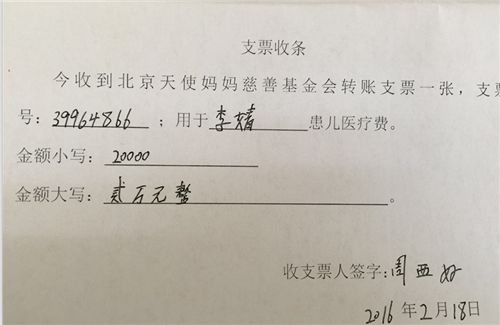 支票收条
今收到北京天使妈妈慈善基金会转账支票一张，支票
号：39964866；用于李婧患儿医疗费。
金额小写：20000
金额大写：贰万元整。
收支票人签字：周西好
2016年2月18日